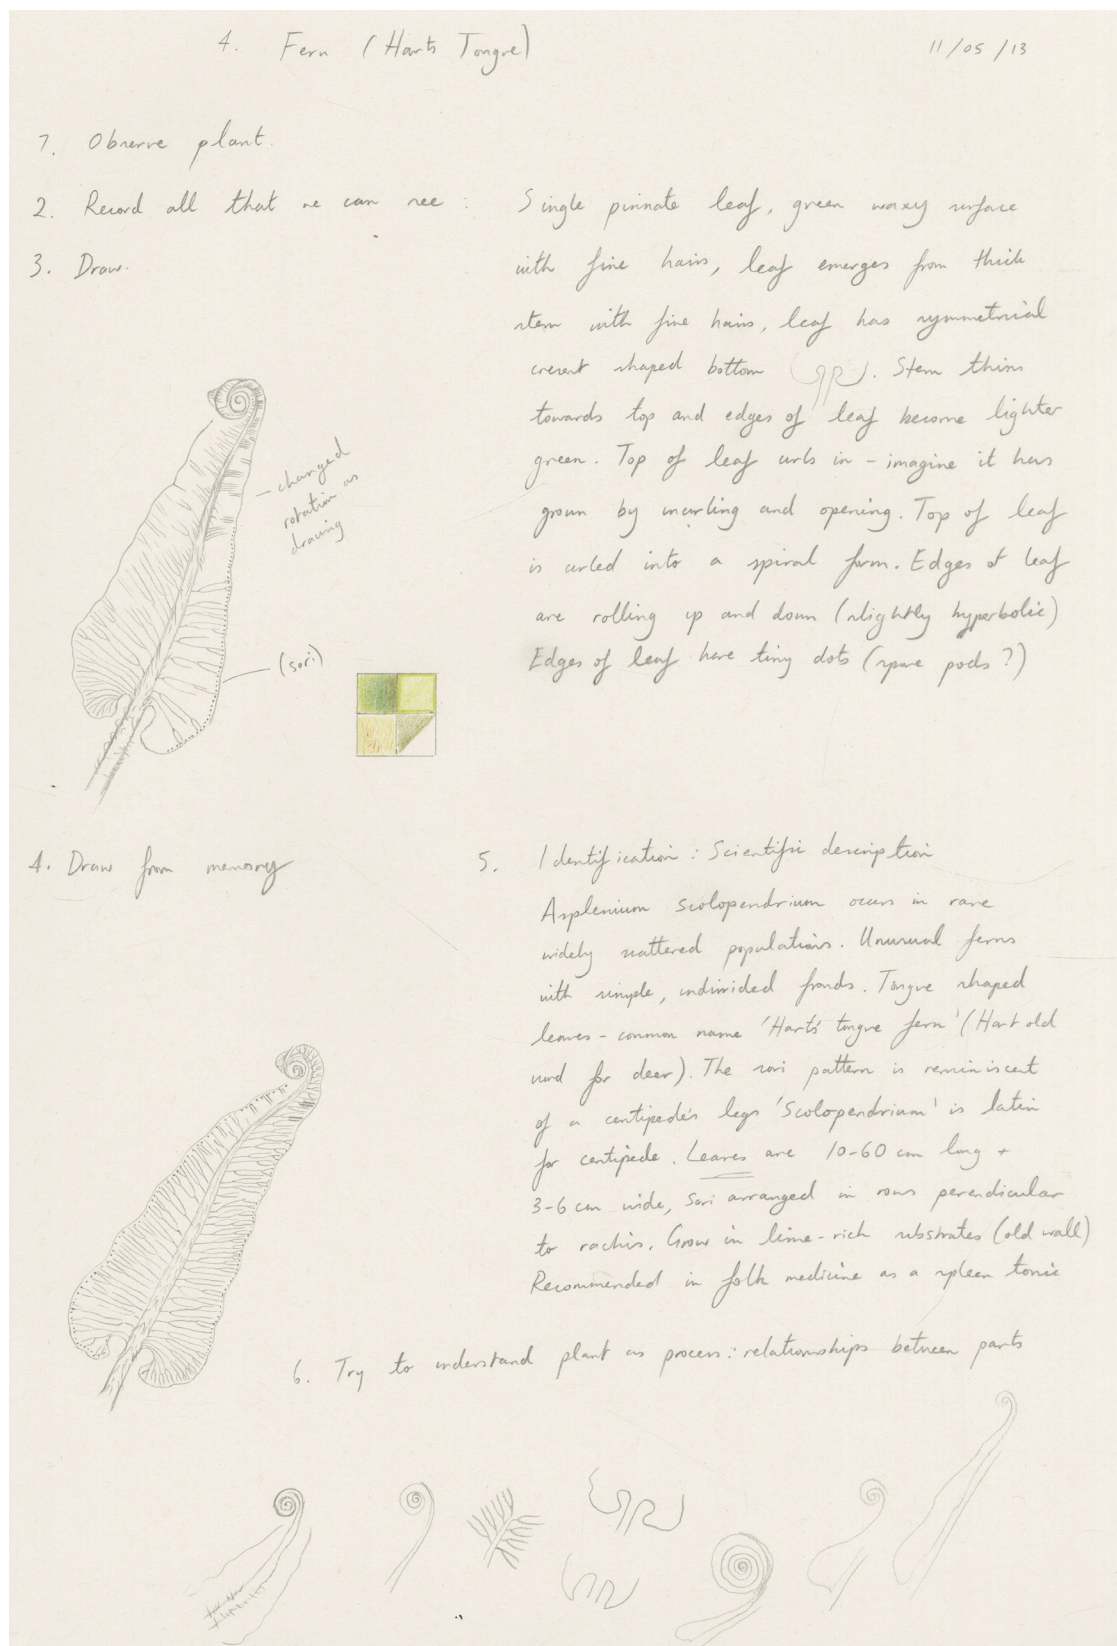 4. Fern (Harts Tongue)
11/05/13
1. Observe plant.
2. Record all that we can see :
3. Draw.
Single pinnate leaf, green waxy surface
with fine hairs, leaf emerges from thick
stem with fine hairs, leaf has symmetrical
cresent shaped bottom . Stem thins
towards top and edges of leaf become lighter
green. Top of leaf curls in - imagine it has
grown by uncurling and opening. Top of leaf
is curled into a spiral form. Edges of leaf
are rolling up and down (slightly hyperbolic)
Edges of leaf have tiny dots (spore pods ?)
changed
rotation as
drawing
(sori)
4. Draw from memory
5. Identification : Scientific description
Asplenium scolopendrium occurs in rare
widely scattered populations. Unusual ferns
with simple, undivided fronds. Tongue shaped
leaves - common name 'Harts' tongue fern' (Hart old
word for deer). The sori pattern is reminiscent
of a centipede's legs 'Scolopendrium' is latin
for centipede. Leaves are 10-60 cm long +
3-6 cm wide, Sori arranged in rows perendicular
to rachis. Grow in lime-rich substrates (old wall)
Recommended in folk medicine as a spleen tonic
6. Try to understand plant as process: relationships between parts